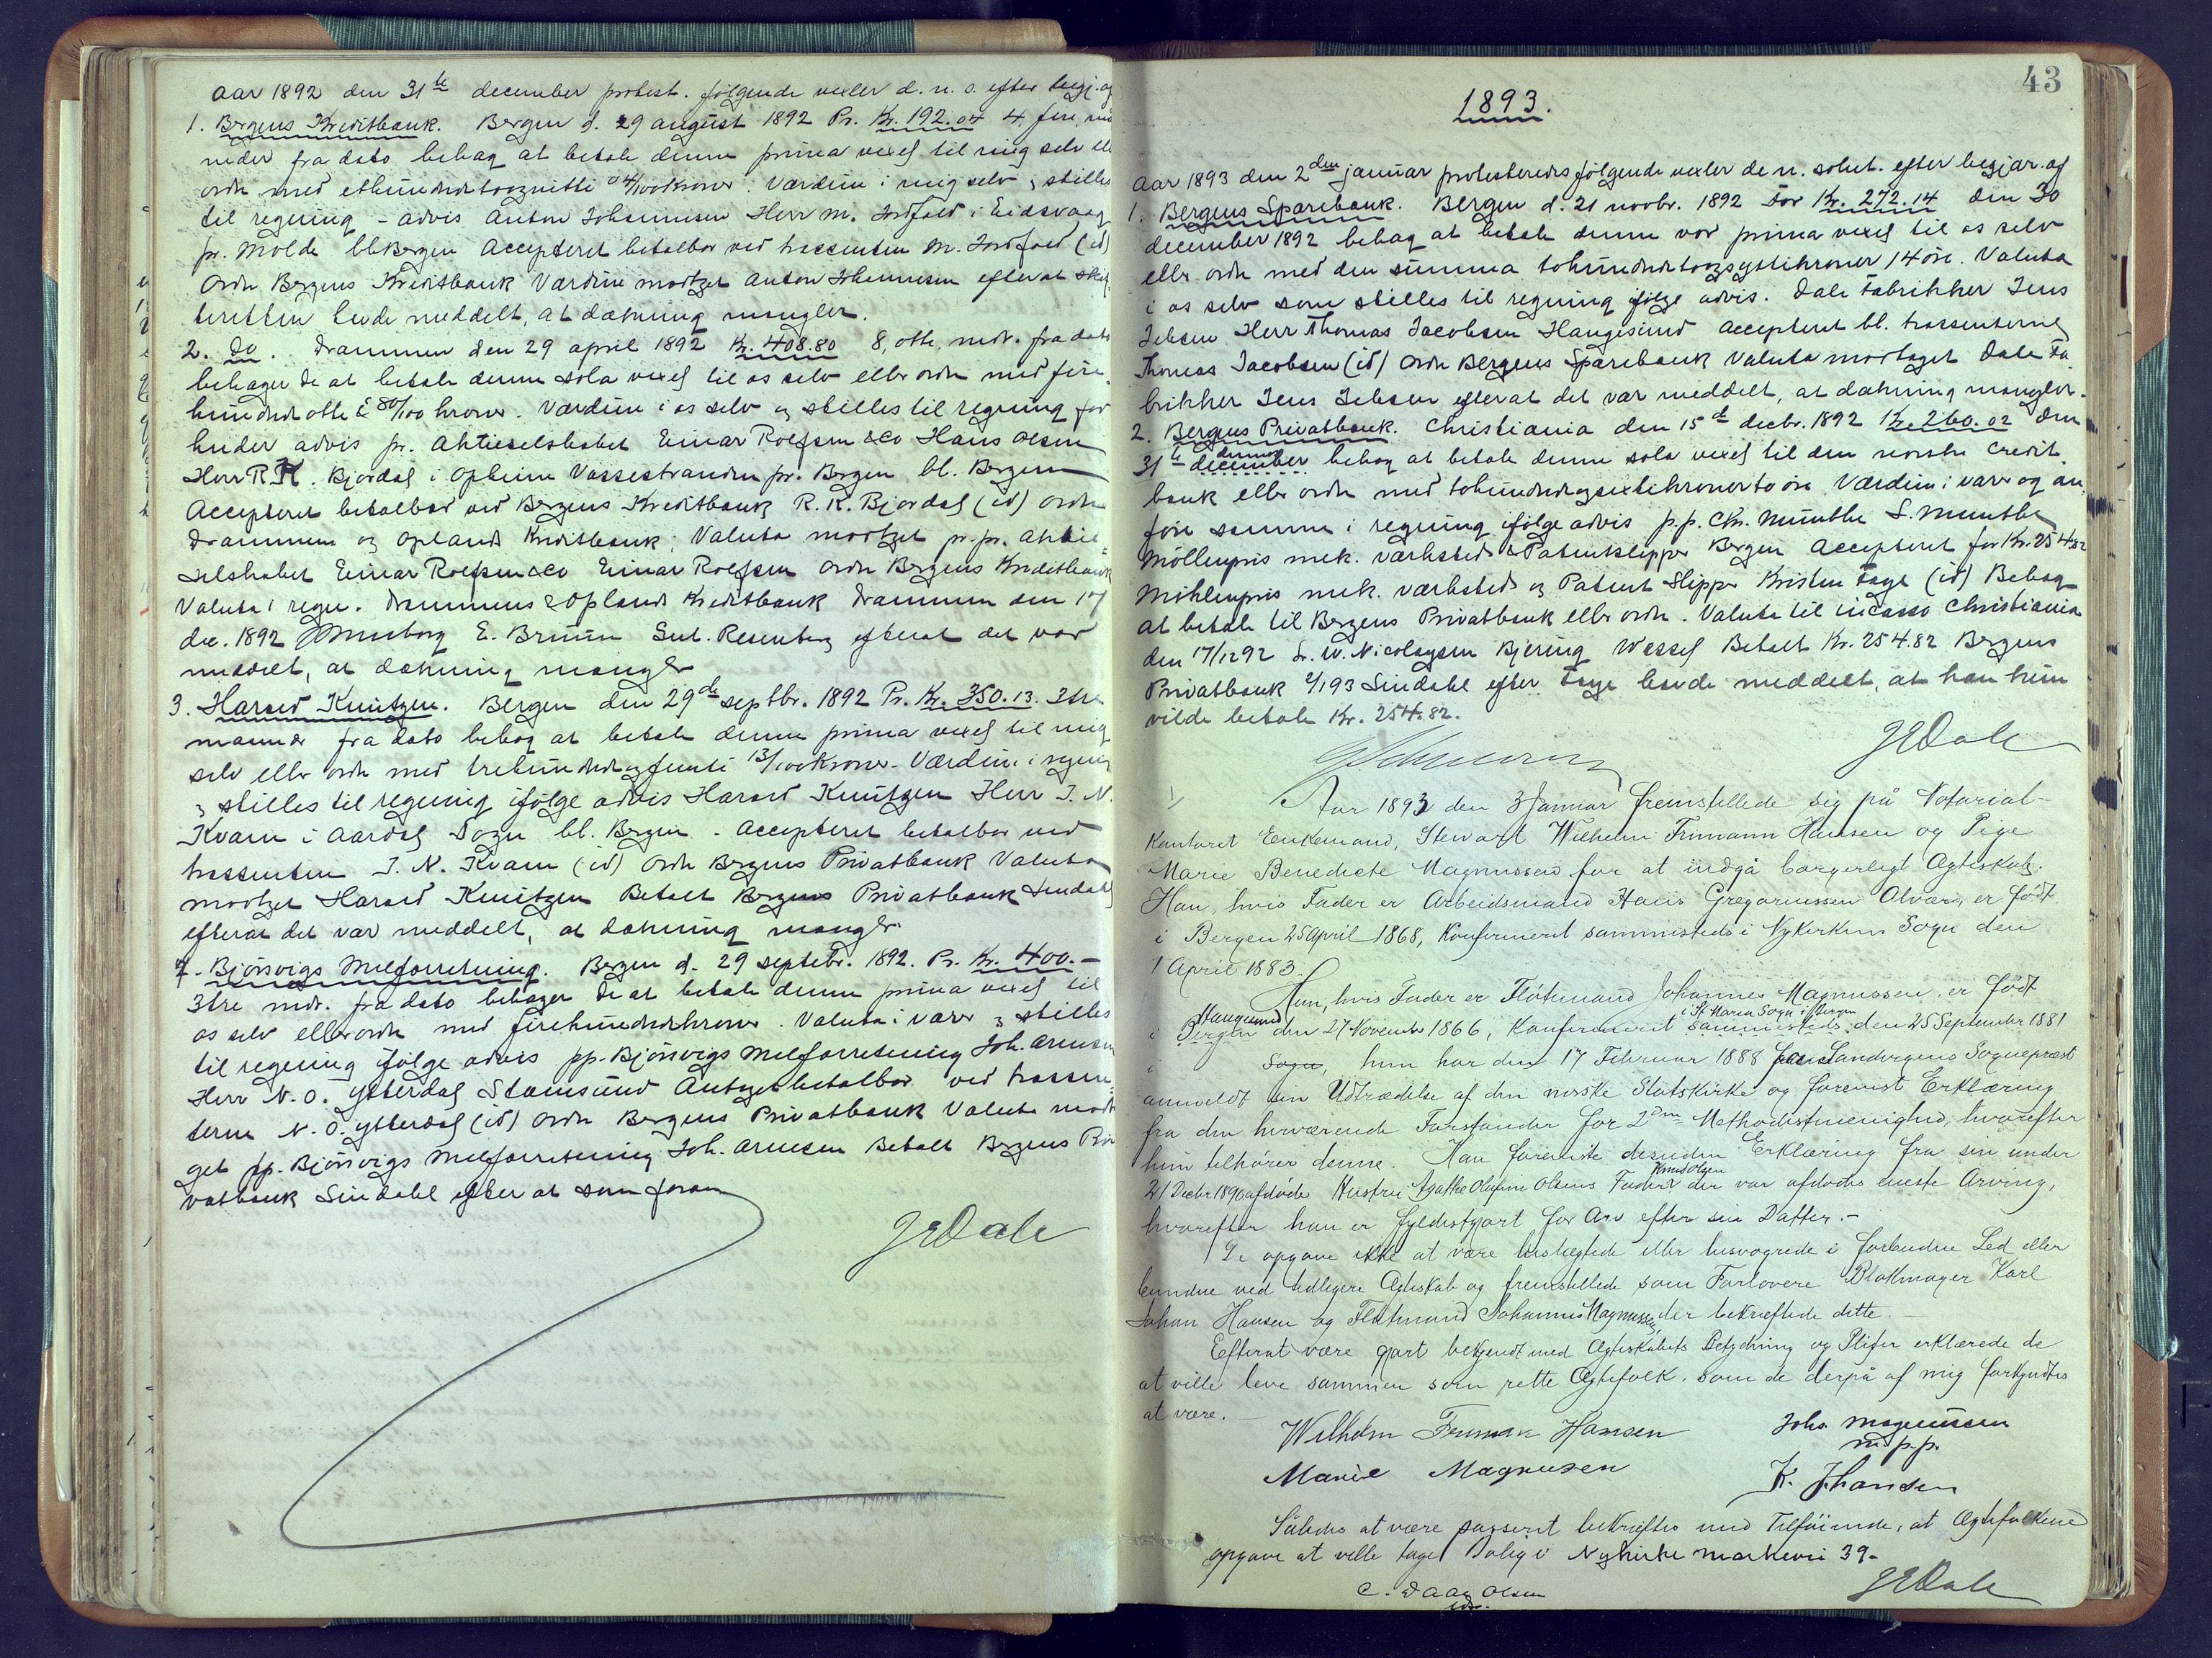 Aar 1892 den 31te december protest. følgende vexler d. n. s. efter begj. af
1. Bergens Kreditbank. Bergen d. 29 august 1892 Pr. Kr. 192.04 4, fire, må
neder fra dato behag at betale denne prima vexel til mig selv ell
ordre med ethundredetoognitti 04/100 Kroner. Værdien i mig selv og stilles
til regning - advis Anton Johannesen Herr M. Jordfald i Eidsvaag
pr. Molde bl Bergen Accepteret betalbar ved trassenten M. Jordfald (id)
Ordre Bergens Kreditbank Værdien modtget Anton Johannesen efterat skif
teretten havde meddelt, at dækning mangler.
2. Do. Drammen den 29 april 1892 Kr. 408.80 8, otte, mdr. fra dato
behager De at betale denne sola vexel til os selv eller ordre med fire
hundrede otte & 80/100 kroner. Værdien i os selv og stilles til regning for
huder advis pr. Aktieselskabet Einar Roefsen & Co Hans Olsen
Herr R. K. Bjørdal i Opheim Vossestranden pr. Bergen bl. Bergen
Accepteret betalbar ved Bergens Kreditbank R. K. Bjørdal (id) Ordre
Drammens og Oplands Kreditbank; Valuta modtget pr. pr. Aktie=
selskabet Einar Roefsen & Co Einar Roefsen Ordre Bergens Kreditbank
Valuta i regn. Drammens & Oplands Kreditbank Drammen den 17
dec. 1892 E. Bruun Gul. Rosenberg efterat det var
meddelt, at dækning mangler
3. Harald Knutzen. Bergen den 29de septbr. 1892 Pr. Kr. 350.13. 3tre
maaneder fra dato behag at betale denne prima vexel til mig
selv eller ordre med trehundredeogfemti 13/100 Kroner. Værdien i regning
og stilles til regning ifølge advis Harald Knutzen Herr J. N.
Kvam i Aardal Sogn bl. Bergen - Accepteret betalbar ved
trassenten J. N. Kvam (id) Ordre Bergens Privatbank Valuta
modtget Harald Knutzen Betalt Bergens Privatbank Lindahl
efterat det var meddelt, at dækning mangler.
4. Bjørsvigs Melforretning. Bergen d. 29 septebr. 1892. Pr. Kr. 400.-
3tre mdr. fra dato behager De at betale denne prima vexel til
os selv eller ordre med firehundredekroner. Valuta i varer og stilles
til regning ifølge advis pp. Bjørsvigs Melforretning Joh. Arnesen
Herr N. O. Ytterdal Stamsund Antaget betalbar ved trassen
terne N. O. Ytterdal (id) Ordre Bergens Privatbank Valuta modt
get pp. Bjørsvigs Melforretning Joh. Arnesen Betalt Bergens Pri
vatbank Lindahl efter at som foran
J E Dale
43
1893.
Aar 1893 den 2den januar protesteredes følgende vexler de n. solut. efter begjær. af
1. Bergens Sparebank. Bergen d. 21 novbr. 1892 For Kr. 272.14 Den 30
december 1892 behag at betale denne vor prima vexel til os selv
eller ordre med den summa tohundredetoogsyttikroner 14 øre. Valuta
i os selv som stilles til regning ifølge advis. Dale Fabrikker Jens
Jebsen Herr Thomas Jacobsen Haugesund Accepteret bl. trassenterne
Thomas Jacobsen (id) Ordre Bergens Sparebank Valuta modtaget Dale Fa
brikker Jens Jebsen efterat det var meddelt, at dækning mangler.
2. Bergens Privatbank. Christiania den 15de decbr. 1892 Kr. 260.02 Den
31te december behag at betale denne sola vexel til den norske Credit
bank eller ordre med tohundredeogsextikroner to øre Værdien i varer og an
føre samme i regning ifølge advis p.p. Chr. Munthe S. Munthe
Møllenpris mek. værksted & Patentslipper Bergen Accepteret for Kr. 254.82
Møhlenpris mek. værksted og Patent Slipper Kristen Faye (id) Behag
at betale til Bergens Privatbank eller ordre. Valuta til incasso Christiania
den 17/12 92 Fr. W. Nicolaysen Bjering Wessel Betalt Kr. 254.82 Bergens
Privatbank 2/1 93 Lindahl efter Faye havde meddelt, at han kun
vilde betale Kr. 254.82.
J E Dale
Aar 1893 den 3 Januar fremstillede sig på Notarial-
kontoret Enkemand, Stewart Wilhelm Frimann Hansen og Pige
Marie Benedicte Magnussen for at indgå borgerligt Ægteskab.
Han, hvis Fader er Arbeidsmand Hans Gregoriussen Alvær, er født
i Bergen 25 April 1868, Konfirmeret sammesteds i Nykirkens Sogn den
1 April 1883.
Hun, hvis Fader er Flåtmand Johannes Magnussen, er født
i Bergen Haugesund den 27 November 1866, Konfirmeret sammesteds i St Maria Sogn i Bergen den 25 September 1881
i Sogn, hun har den 17 Februar 1888 for Sandvigens Sogneprest
anmeldt sin Udtrædelse af den norske Statskirke og forevist Erklæring
fra den herværende Forstander for 2den Methodistmenighed, hvorefter
hun tilhører denne. Han foreviste desuden Erklæring fra sin under
21 Decbr 1890 afdøde Hustru Agathe Olufine Olsens Fader Knud Olsen der var afdødes eneste Arving,
hvorefter han er fyldestgjort for Arv efter sin Datter.-
De opgave ikke at være beslægtede eller besvogrede i forbudne Led eller
bundne ved tidligere Ægteskab og fremstillede som Forlovere Blokmager Karl
Johan Hansen og Flotmand Johannes Magnussen, der bekræftede dette.-
Efterat være gjort bekjendt med Ægteskabets Betydning og Pligter erklærede de
at ville leve sammen som rette Ægtefolk, som de derpå af mig forkyndtes
at være.-
Wilhelm Friman Hansen
Johs Magnussen
m.p.p.
Marie Magnusen
K. J. Hansen
Således at være passeret bekræftes med Tilføiende, at Ægtefolkene
opgave at ville tage Bolig i Nykirke markevei 39-
C. Daae Olsen
J E Dale